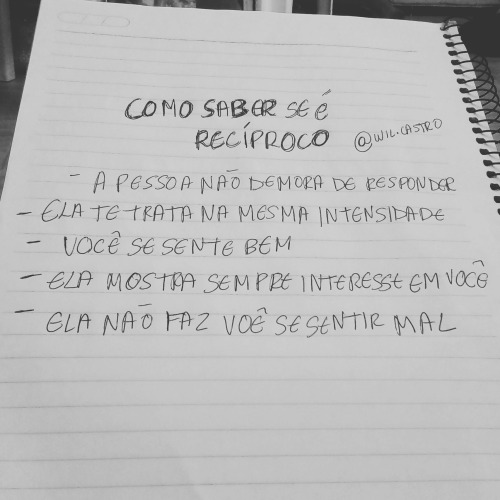 COMO SABER SE É
RECÍPROCO @WIL.CASTRO
- A PESSOA NÃO DEMORA DE RESPONDER
- ELA TE TRATA NA MESMA INTENSIDADE
- VOCÊ SE SENTE BEM
- ELA MOSTRA SEMPRE INTERESSE EM VOCÊ
- ELA NÃO FAZ VOCÊ SE SENTIR MAL